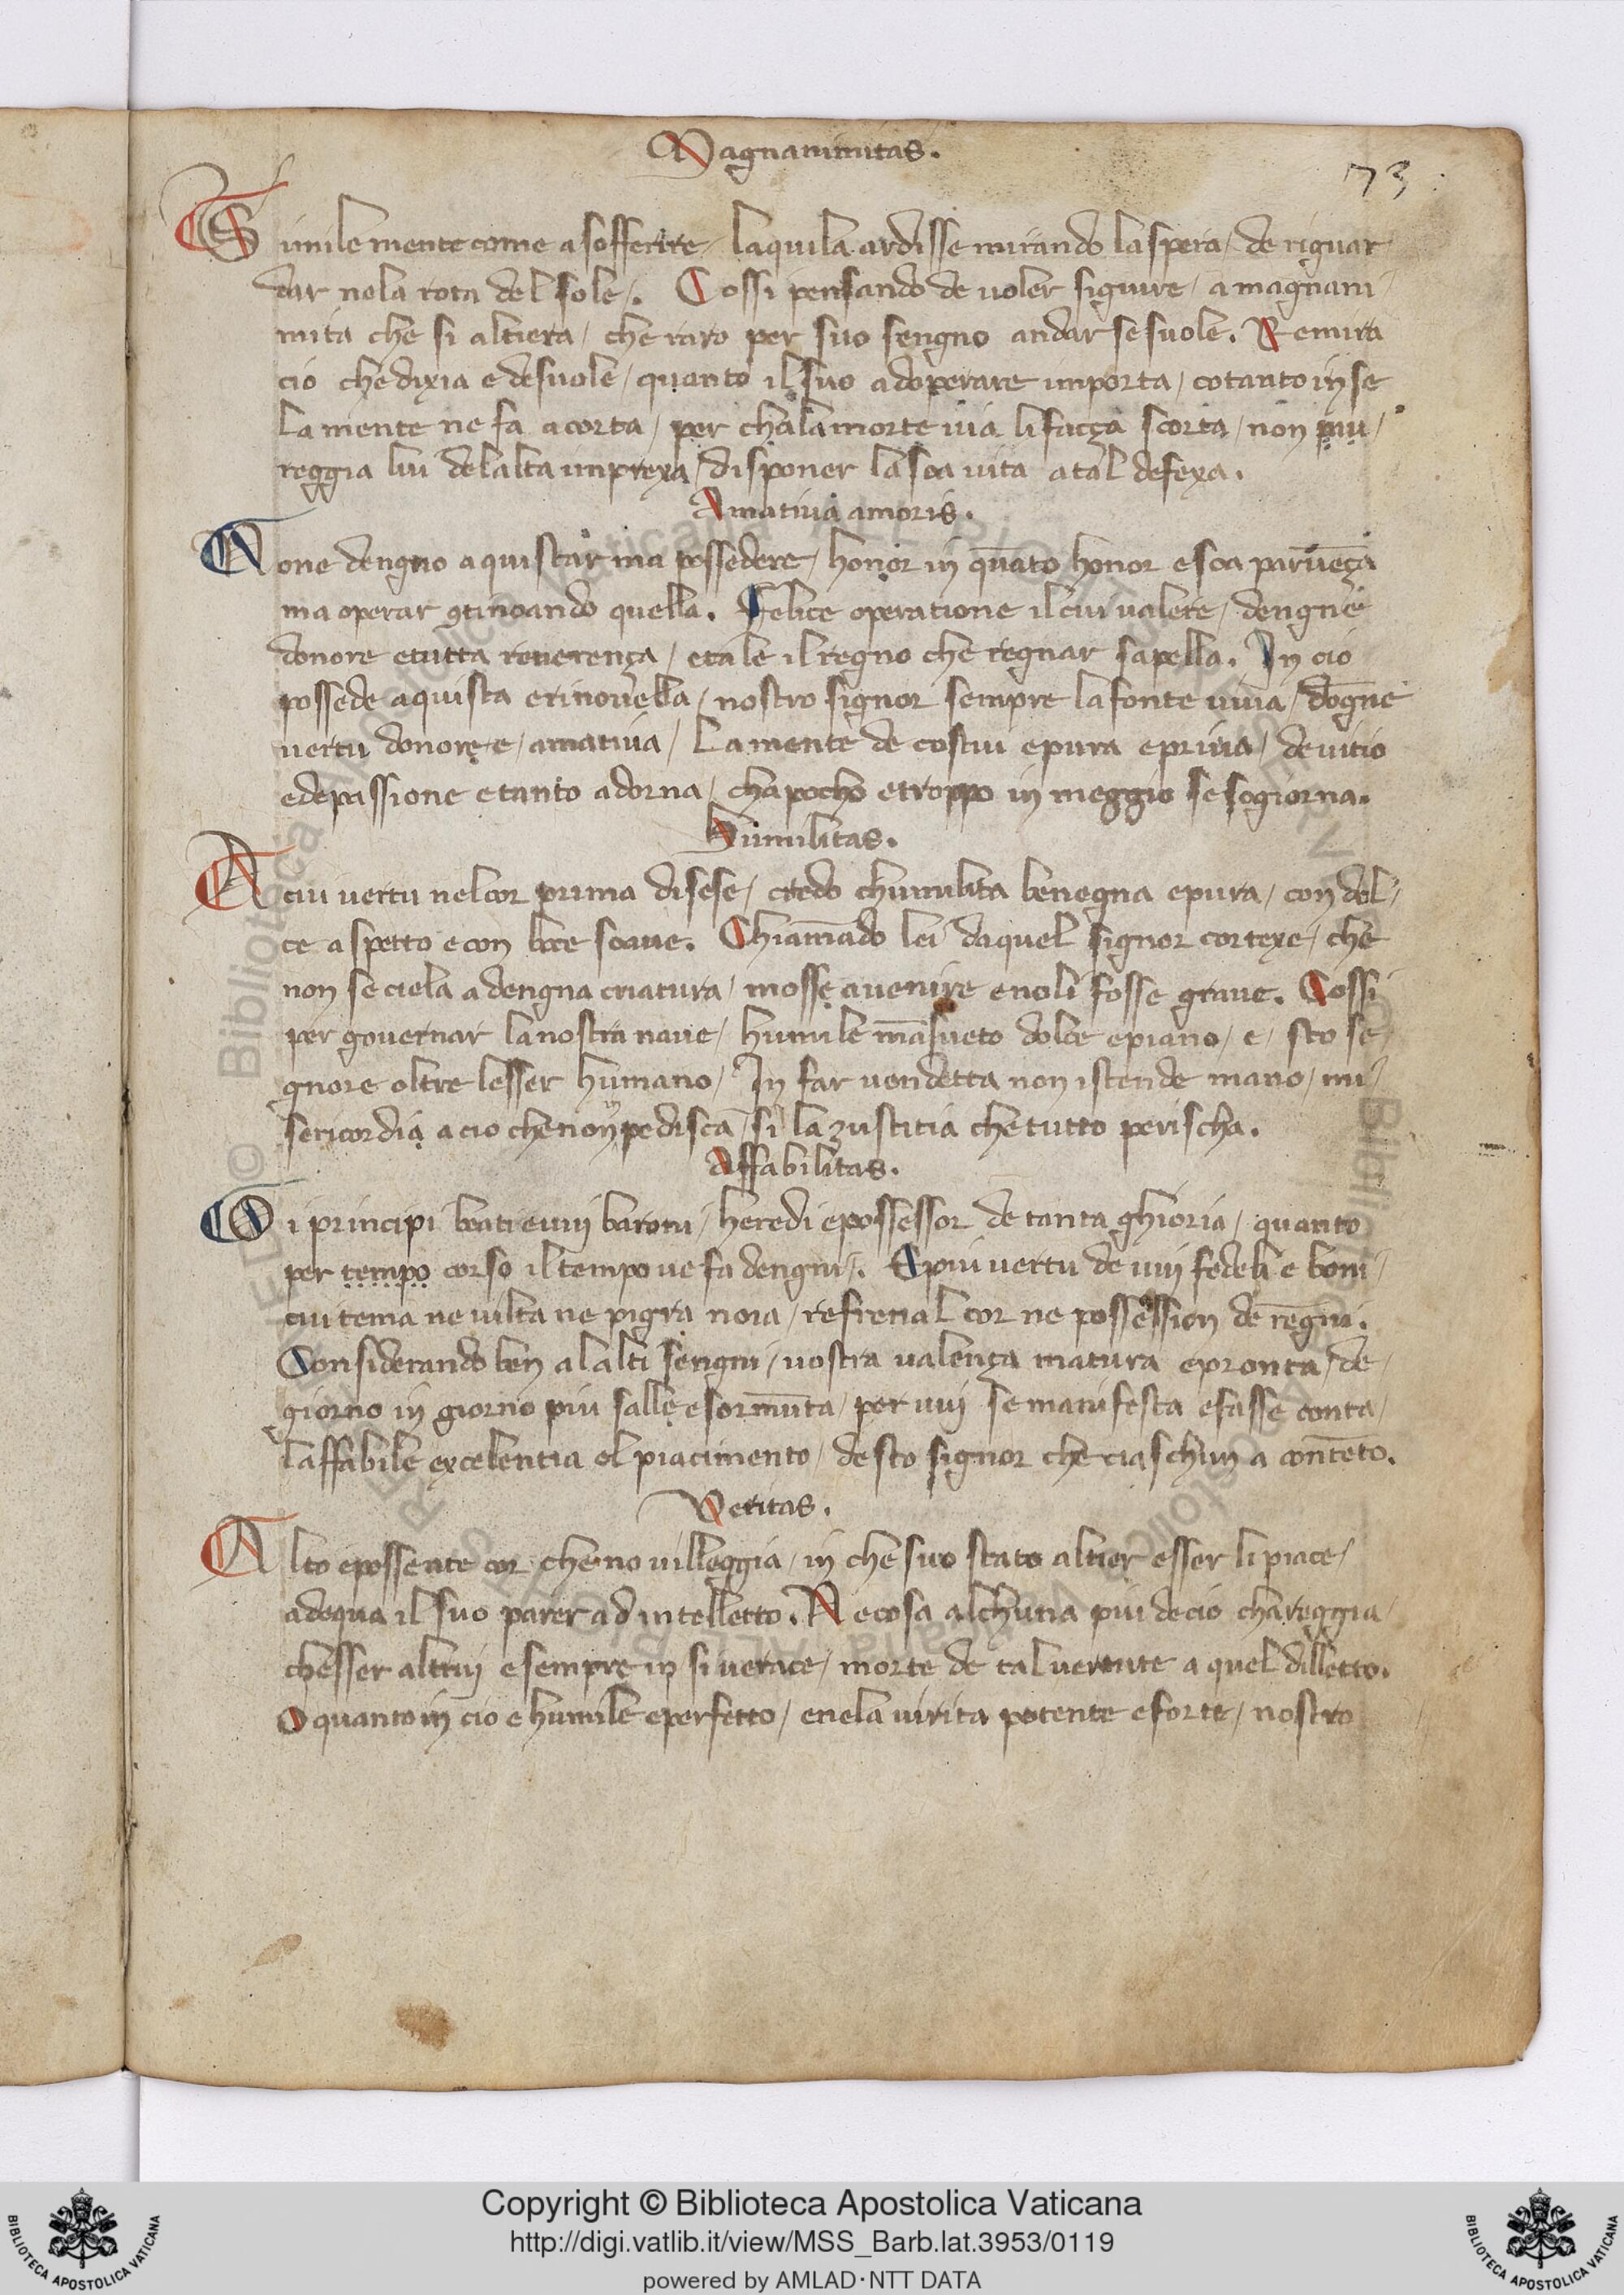 Magnanimitas.
73
Similemente come a sofferire / laquila ardisse mirando la spera / de riguar
dar nela rota del sole /. Cossi pensando de uoler siguire / a magnani
mita che si altiera / che raro per suo sengno andar se suole. Remira
cio che dixia e desuole / quanto il suo adoperare importa / cotanto in se
la mente ne fa acorta / per chala morte uia li facça scorta / non piu /
reggia lui delalta imprexa / disponer la soa uita a tal defexa.
Amatiua amoris.
None dengno aquistar ma possedere / honor in quāto honor e soa paruēça
ma operar 9tinoando quella. Felice operatione il cui ualere / dengn e
donore e tutta reuerença / e tale il regno che regnar sapella. In cio
possede aquista e rinouella / nostro signor sempre la fonte uiua / dogne
uertu donore e / amatiua / La mente de costui e pura e priua / de uitio
e de passione e tanto adorna / cha pocho e troppo in meggio se sogiorna.
Humilitas.
A cui uertu nel cor prima disese / credo chumilita benegna e pura / con dol /
ce aspetto e con boce soaue. Chiamādo lei da quel signor cortexe / che
non se ciela a dengna criatura / mosse a uenire e noli fosse graue. Cossi
per gouernar la nostra naue / humile māsueto dolce e piano / e / sto se
gnore oltre lesser humano / In far uendetta non istende mano / mi /
sericordia a cio che non īpedisca / si la zustitia che tutto perischa.
Affabilitas.
Oi principi beati e uui baroni / heredi e possessor de tanta ghioria / quanto
per tempo corso il tempo ue fa dengni /. E piu uertu de uui fedeli e boni /
cui tema ne uilta ne pigra noia / refrena l cor ne possession de regni.
Considerando ben a lalti sengni / uostra ualença matura e pronta / de /
giorno in giorno piu salle e sormūta / per uui se manifesta e fasse conta /
laffabile excelentia el piacimento / de sto signor che ciaschun a contēto.
Veritas.
Alto e possente cor che no uilleggia / in che suo stato altier esser li piace /
adequa il suo parer ad intelletto. Ne cosa alchuna piu de cio chareggia /
chesser altrui e sempre in si uerace / morte de tal uertute a quel dilletto.
O quanto in cio e humile e perfetto / e nela uirita potente e forte / nostro
Copyright © Biblioteca Apostolica Vaticana
http://digi.vatlib.it/view/MSS_Barb.lat.3953/0119
powered by AMLAD·NTT DATA
BIBLIOTECA APOSTOLICA VATICANA
BIBLIOTECA APOSTOLICA VATICANA